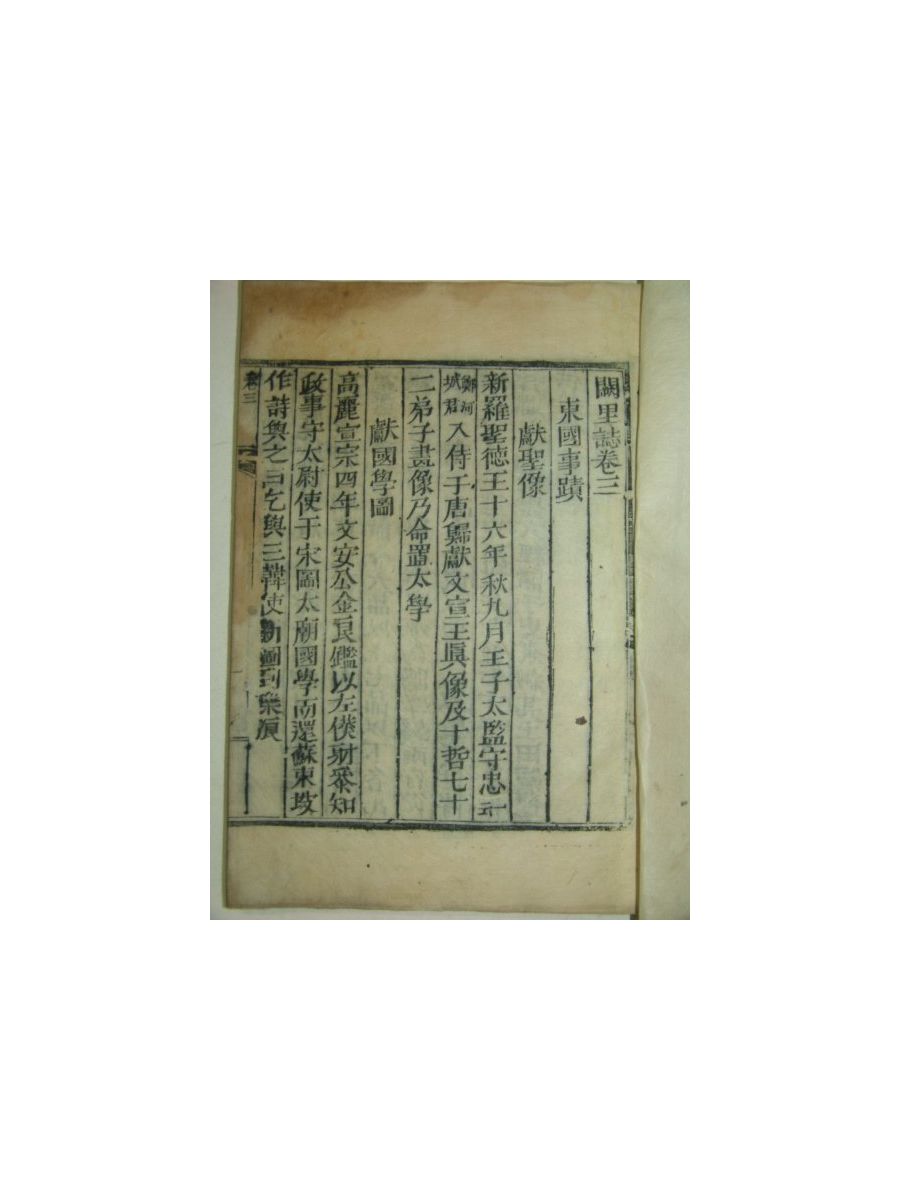 闕里誌卷三
東國事蹟
獻聖像
新羅聖德王十六年秋九月王子太監守忠一云
鄭河城君入侍于唐歸獻文宣王眞像及十哲七十
二弟子畫像乃命置太學
獻國學圖
高麗宣宗四年文安公金良鑑以左僕射叅知
政事守太尉使于宋圖太廟國學而還蘇東坡
作詩與之曰乞與三韓使
卷三